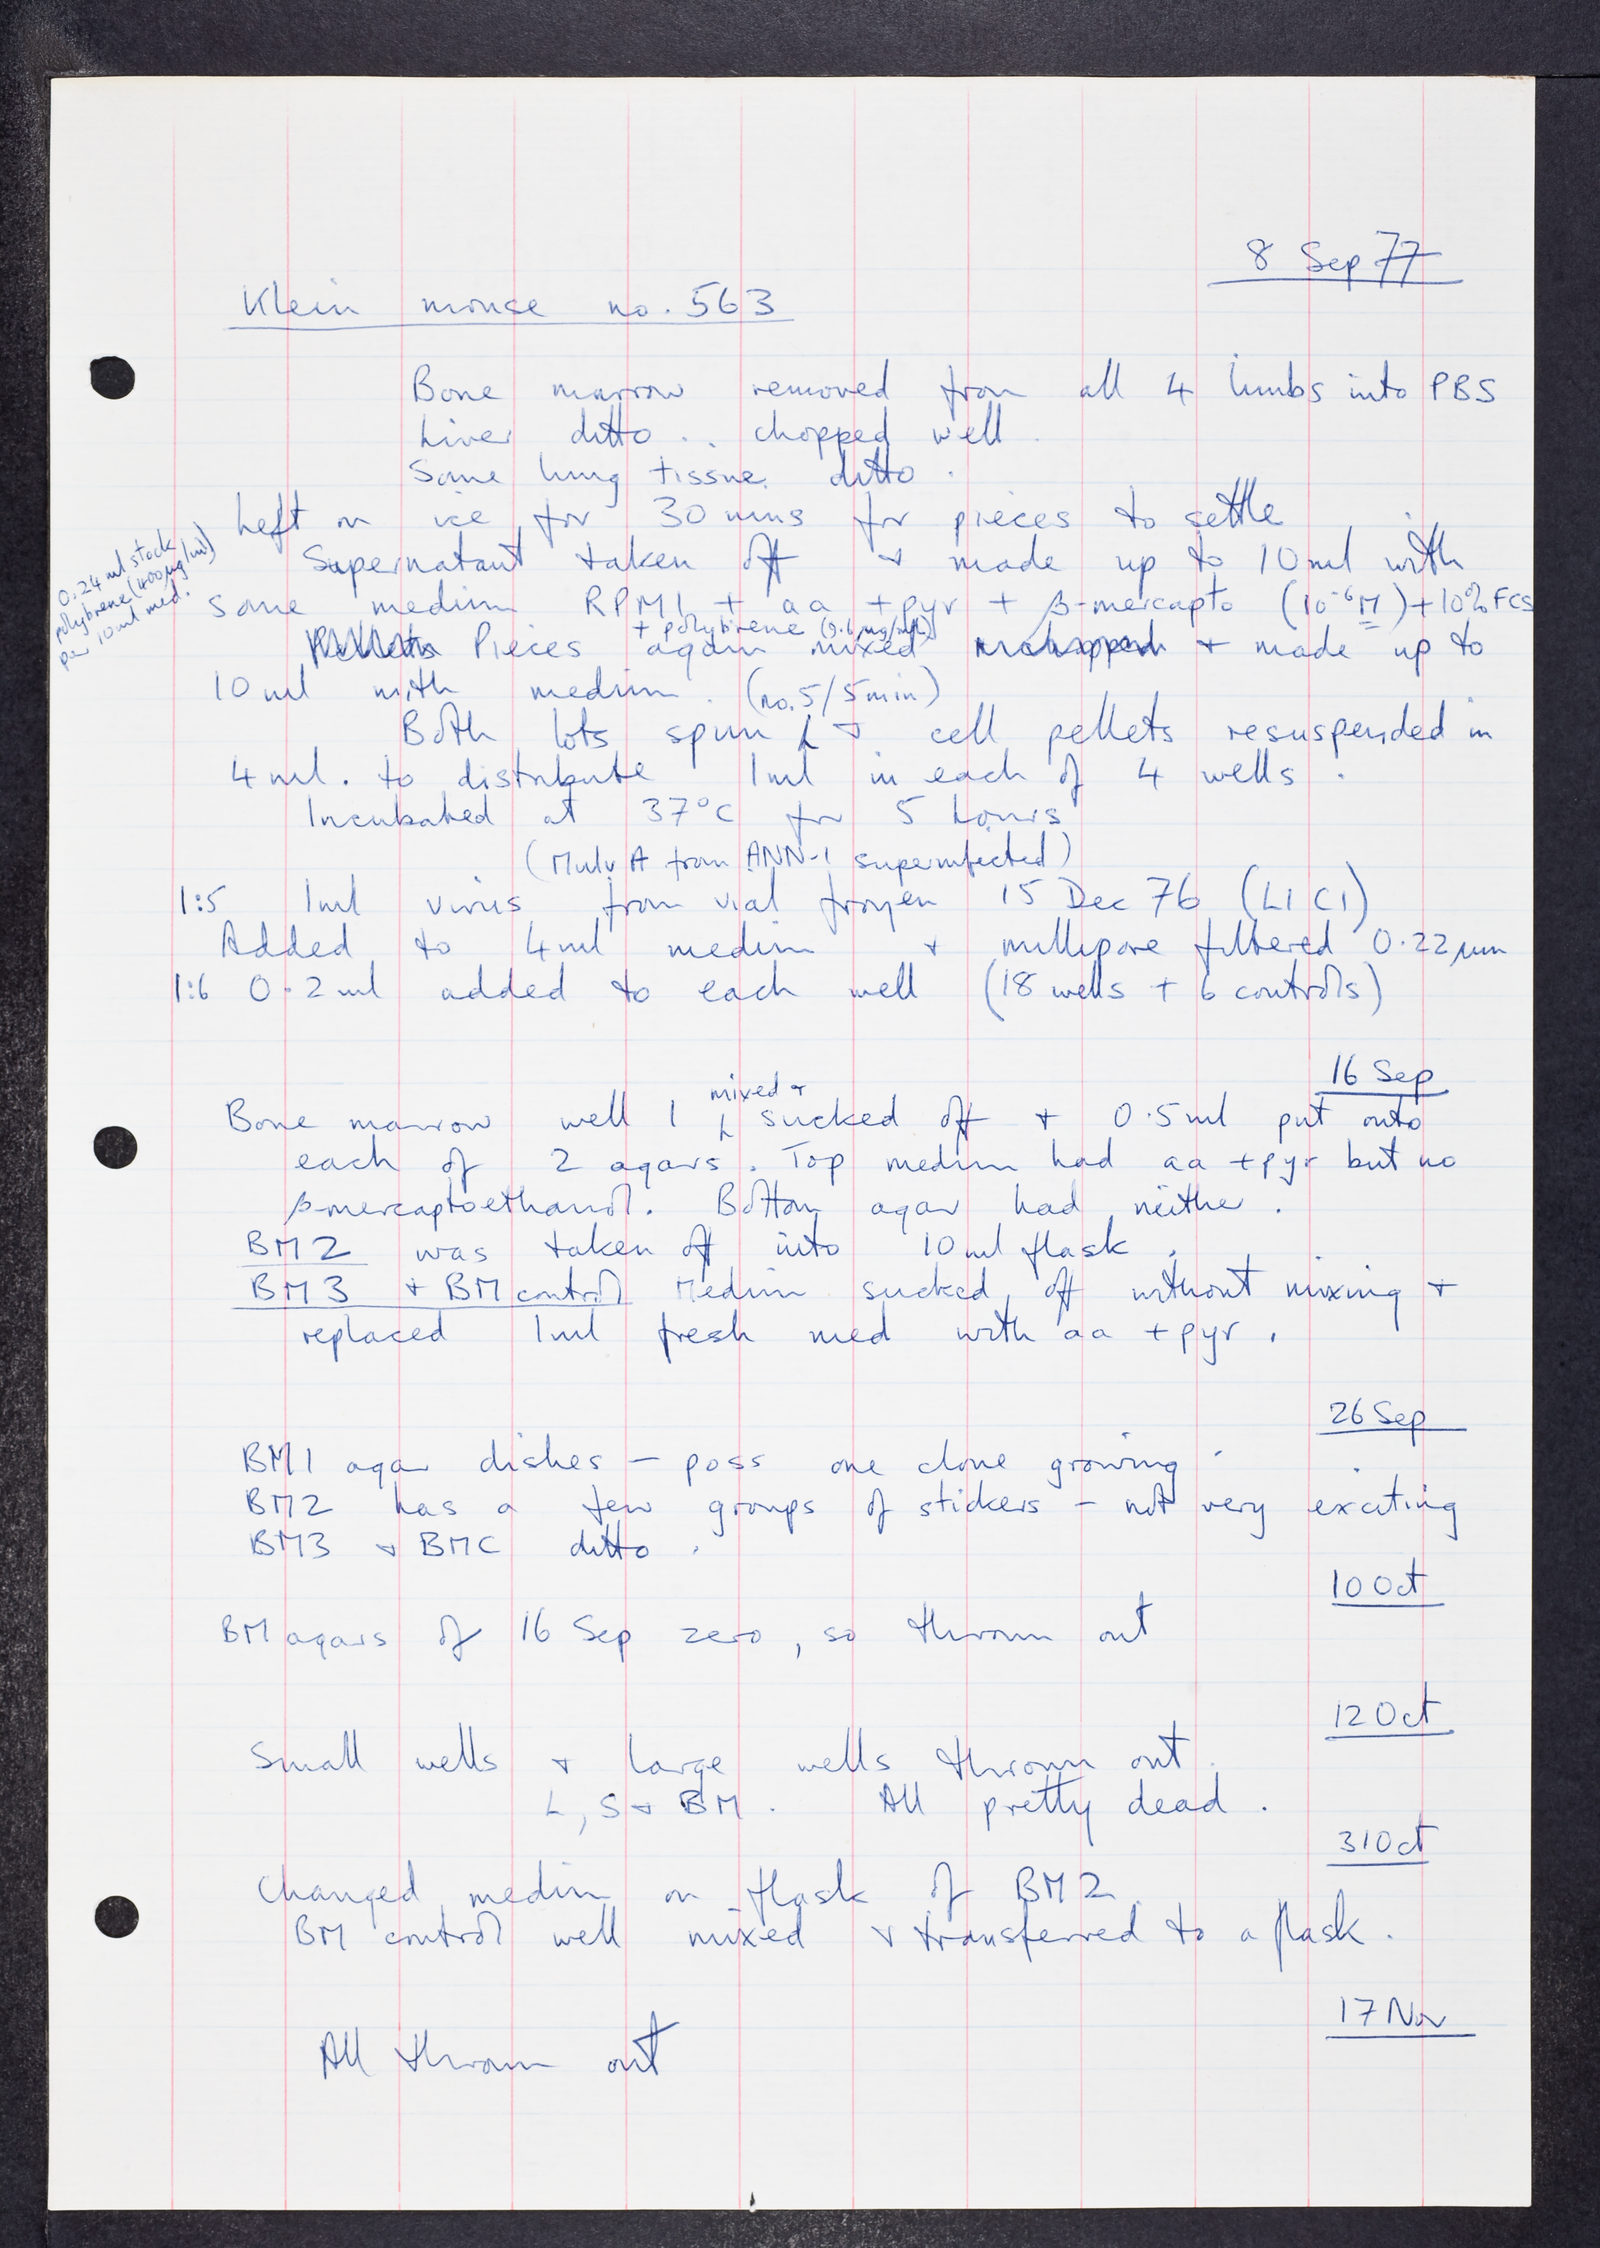 8 Sep 77
Klein mouse no. 563
Bone marrow removed from all 4 limbs into PBS
Liver ditto .. chopped well.
Some lung tissue ditto.
Left on ice for 30 mins for pieces to settle
0.24 ml stock
polybrene (400 µg/ml)
per 10 ml med.
Supernatant taken off + made up to 10 ml with
some medium RPMI + aa + pyr + β-mercapto (10⁻⁶M) + 10% FCS
+ polybrene (9.6 µg/ml)
Pieces again mixed + made up to
10 ml with medium. (no. 5/5 min)
Both lots spun + cell pellets resuspended in
4 ml. to distribute 1 ml in each of 4 wells.
Incubated at 37°C for 5 hours
(MuLV A from ANN-1 superinfected)
1:5 1 ml virus from vial frozen 15 Dec 76 (L1 C1)
Added to 4 ml medium + millipore filtered 0.22 µm
1:6 0.2 ml added to each well (18 wells + 6 controls)
16 Sep
mixed +
Bone marrow well 1 sucked off + 0.5 ml put onto
each of 2 agars. Top medium had aa + pyr but no
β-mercaptoethanol. Bottom agar had neither.
BM2 was taken off into 10 ml flask.
BM3 + BM control Medium sucked off without mixing +
replaced 1 ml fresh med with aa + pyr.
26 Sep
BM1 agar dishes – poss one clone growing.
BM2 has a few groups of stickers – not very exciting
BM3 + BMC ditto.
10 Oct
BM agars of 16 Sep zero, so thrown out
12 Oct
Small wells + large wells thrown out.
L, S + BM. All pretty dead.
31 Oct
Changed medium on flask of BM2.
BM control well mixed + transferred to a flask.
17 Nov
All thrown out